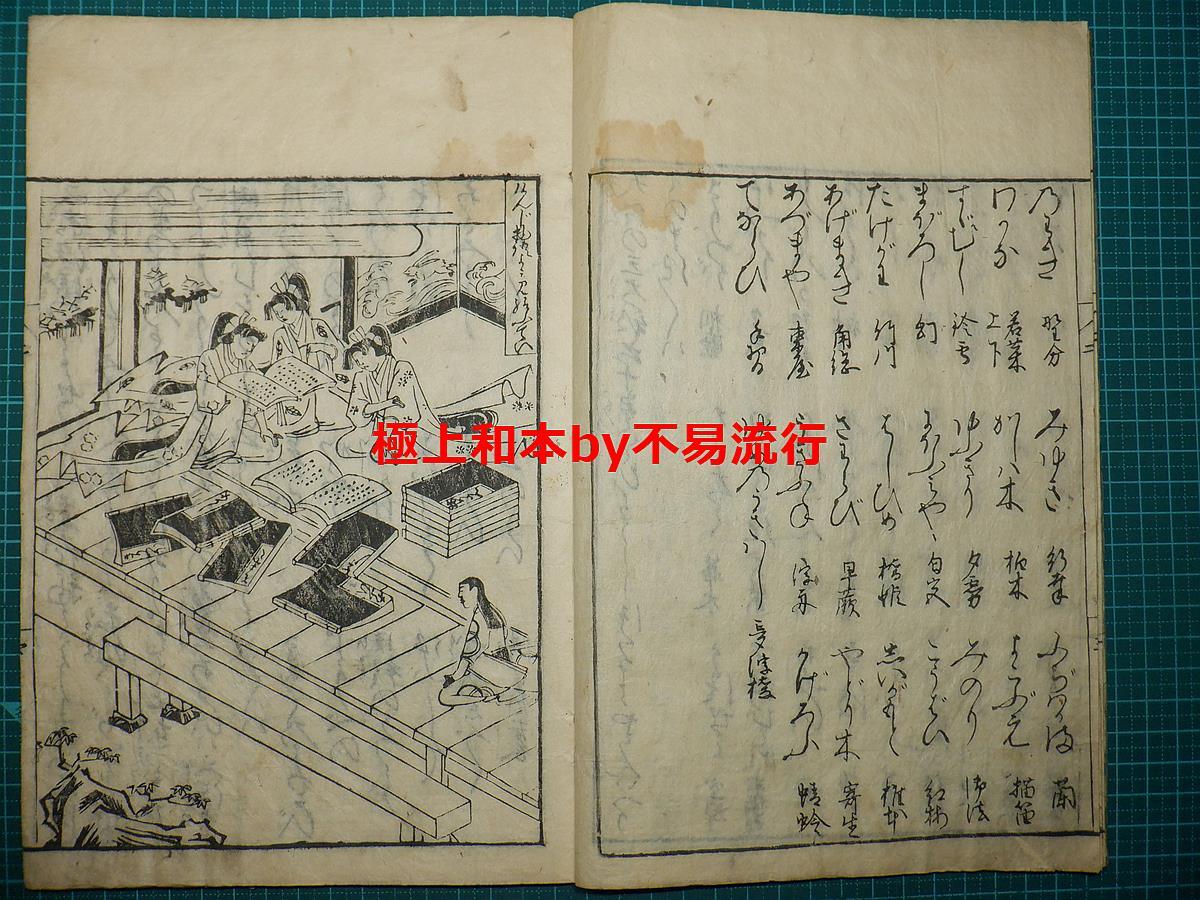 のわき 野分 みゆき 行幸 ふぢばかま 蘭
わかな 若菜上下 かしは木 柏木 よこぶえ 横笛
すゞむし 鈴虫 ゆふぎり 夕霧 みのり 御法
まぼろし 幻 にほふみや 匂宮 こうばい 紅梅
たけがは 竹川 はしひめ 橋姫 しゐがもと 椎本
あげまき 角総 さわらび 早蕨 やどり木 寄生
あづまや 東屋 うきふね 浮舟 かげろふ 蜻蛉
てならひ 手習 夢浮橋
極上和本by不易流行